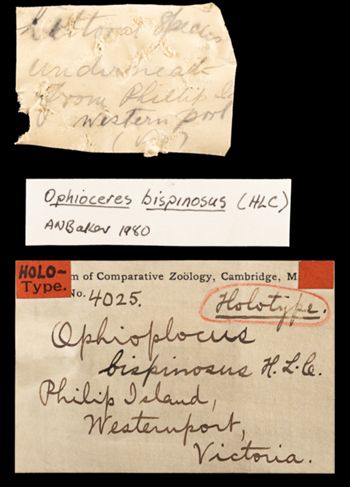 species
underneath
from Phillip
Western port
(Vic)
Ophioceres bispinosus (HLC)
ANBaker 1980
HOLO-
Type.
m of Comparative Zoölogy, Cambridge, M
No. 4025.
Holotype.
Ophioplocus
bispinosus H.L.C.
Philip Island,
Westernport,
Victoria.